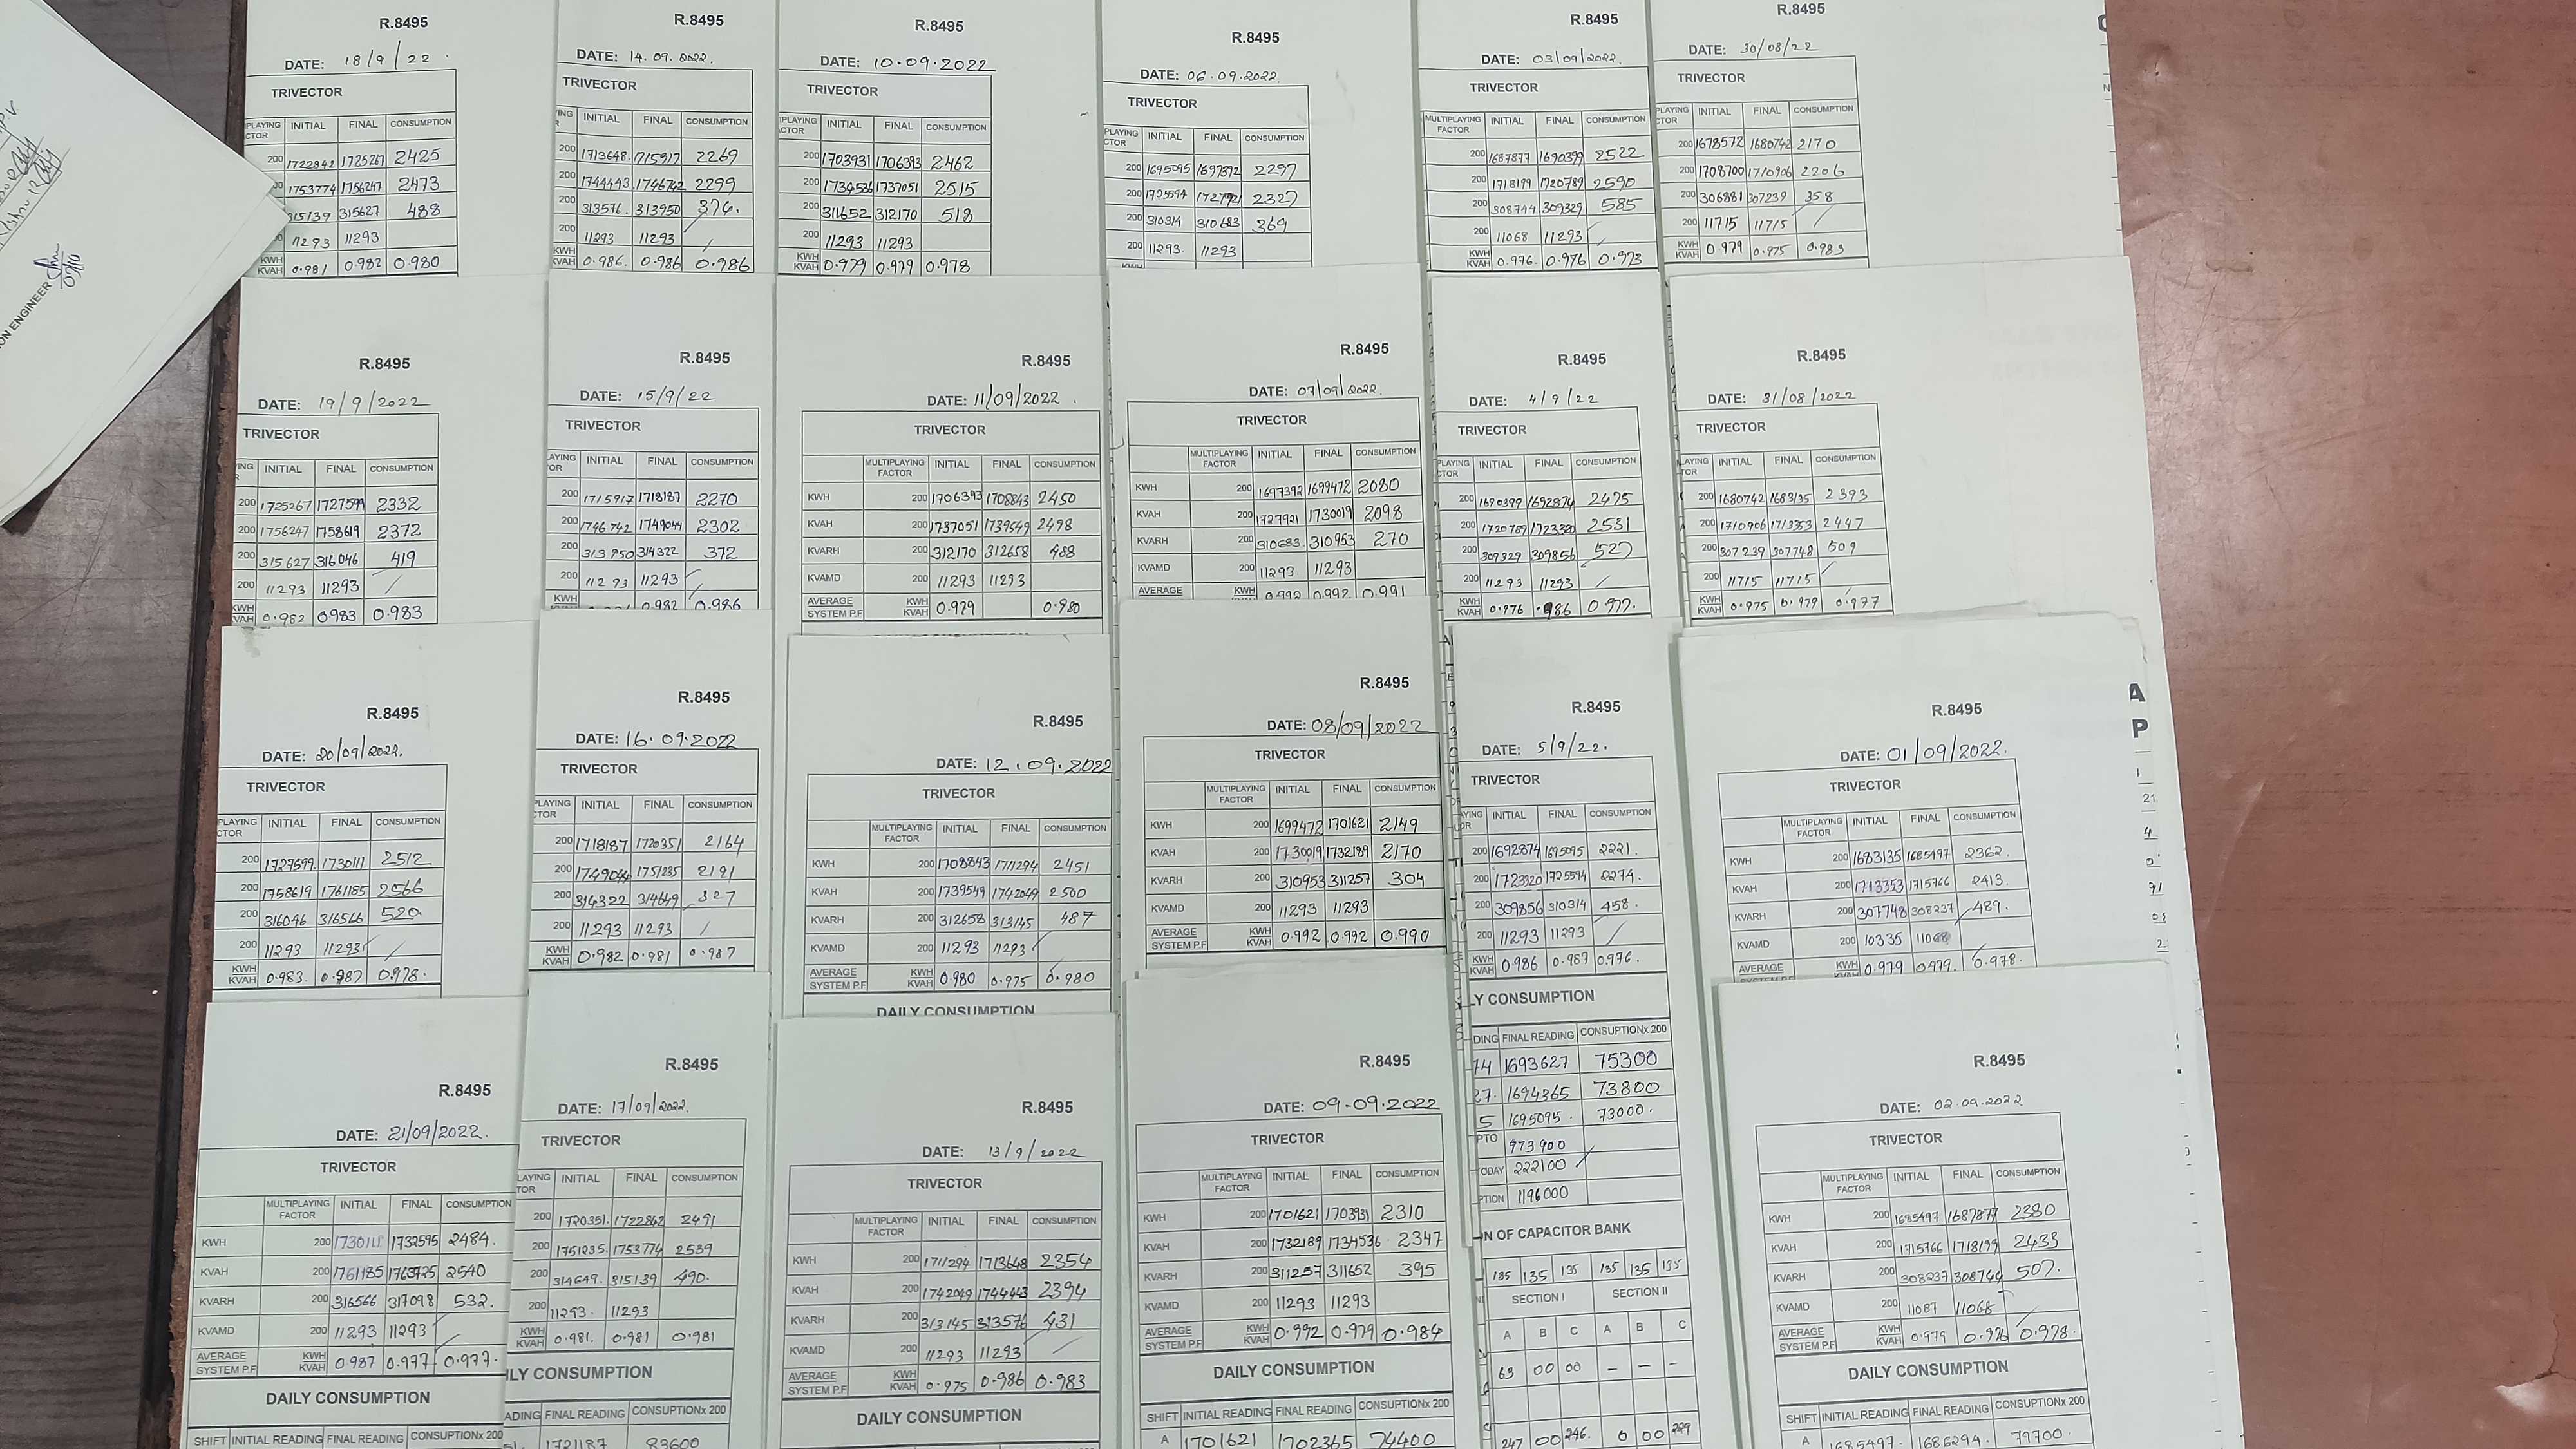 R.8495
DATE: 18/9/22
TRIVECTOR
PLAYING CTOR INITIAL FINAL CONSUMPTION
200 1722842 1725267 2425
1753774 1756247 2473
315139 315627 488
11293 11293
KWH KVAH 0.981 0.982 0.980
R.8495
DATE: 14.09.2022.
TRIVECTOR
INITIAL FINAL CONSUMPTION
200 1713648. 1715917 2269
200 1744443 1746742 2299
200 313576. 313950 374.
200 11293 11293
KWH KVAH 0.986. 0.986 0.986
R.8495
DATE: 10.09.2022
TRIVECTOR
INITIAL FINAL CONSUMPTION
200 1703931 1706393 2462
200 1734536 1737051 2515
200 311652 312170 518
200 11293 11293
KWH KVAH 0.979 0.979 0.978
R.8495
DATE: 06.09.2022.
TRIVECTOR
PLAYING CTOR INITIAL FINAL CONSUMPTION
200 1695095 1697392 2297
200 1725594 1727921 2327
200 310314 310683 369
200 11293. 11293
R.8495
DATE: 03/09/2022.
TRIVECTOR
MULTIPLAYING FACTOR INITIAL FINAL CONSUMPTION
200 1687877 1690399 2522
200 1718199 1720789 2590
200 308744 309329 585
200 11068 11293
KWH KVAH 0.976. 0.976 0.973
R.8495
DATE: 30/08/22
TRIVECTOR
PLAYING CTOR INITIAL FINAL CONSUMPTION
200 1678572 1680742 2170
200 1708700 1710906 2206
200 306881 307239 358
200 11715 11715
KWH KVAH 0.979 0.975 0.983
ON ENGINEER
R.8495
DATE: 19/9/2022
TRIVECTOR
INITIAL FINAL CONSUMPTION
200 1725267 1727599 2332
200 1756247 1758619 2372
200 315627 316046 419
200 11293 11293
KWH KVAH 0.982 0.983 0.983
R.8495
DATE: 15/9/22
TRIVECTOR
INITIAL FINAL CONSUMPTION
200 1715917 1718187 2270
200 1746742 1749044 2302
200 313950 314322 372
200 11293 11293
0.982 0.986
R.8495
DATE: 11/09/2022.
TRIVECTOR
MULTIPLAYING FACTOR INITIAL FINAL CONSUMPTION
KWH 200 1706393 1708843 2450
KVAH 200 1737051 1739549 2498
KVARH 200 312170 312658 488
KVAMD 200 11293 11293
AVERAGE SYSTEM P.F KWH KVAH 0.979 0.980
R.8495
DATE: 07/09/2022.
TRIVECTOR
MULTIPLAYING FACTOR INITIAL FINAL CONSUMPTION
KWH 200 1697392 1699472 2080
KVAH 200 1727921 1730019 2098
KVARH 200 310683. 310953 270
KVAMD 200 11293. 11293
AVERAGE KWH 0.992 0.992 0.991
R.8495
DATE: 4/9/22
TRIVECTOR
PLAYING CTOR INITIAL FINAL CONSUMPTION
200 1690399 1692874 2475
200 1720789 1723320 2531
200 309329 309856 527
200 11293 11293
KWH KVAH 0.976 .986 0.977.
R.8495
DATE: 31/08/2022
TRIVECTOR
INITIAL FINAL CONSUMPTION
200 1680742 1683135 2393
200 1710906 1713353 2447
200 307239 307748 509
200 11715 11715
KWH KVAH 0.975 0.979 0.977
R.8495
DATE: 20/09/2022.
TRIVECTOR
PLAYING CTOR INITIAL FINAL CONSUMPTION
200 1727599. 1730111 2512
200 1758619 1761185 2566
200 316046 316566 520
200 11293 11293
KWH KVAH 0.983. 0.987 0.978.
R.8495
DATE: 16.09.2022
TRIVECTOR
PLAYING CTOR INITIAL FINAL CONSUMPTION
200 1718187 1720351 2164
200 1749044 1751235 2191
200 314322 314649 327
200 11293 11293
KWH KVAH 0.982 0.981 0.987
R.8495
DATE: 12.09.2022
TRIVECTOR
MULTIPLAYING FACTOR INITIAL FINAL CONSUMPTION
KWH 200 1708843 1711294 2451
KVAH 200 1739549 1742049 2500
KVARH 200 312658 313145 487
KVAMD 200 11293 11293
AVERAGE SYSTEM P.F KWH KVAH 0.980 0.975 0.980
DAILY CONSUMPTION
R.8495
DATE: 08/09/2022
TRIVECTOR
MULTIPLAYING FACTOR INITIAL FINAL CONSUMPTION
KWH 200 1699472 1701621 2149
KVAH 200 1730019 1732189 2170
KVARH 200 310953 311257 304
KVAMD 200 11293 11293
AVERAGE SYSTEM P.F KWH KVAH 0.992 0.992 0.990
R.8495
DATE: 5/9/22.
TRIVECTOR
INITIAL FINAL CONSUMPTION
200 1692874 1695095 2221.
200 1723320 1725594 2274.
200 309856 310314 458.
200 11293 11293
KWH KVAH 0.986 0.987 0.976.
LY CONSUMPTION
DING FINAL READING CONSUPTIONx 200
74 1693627 75300
27. 1694365 73800
5 1695095. 73000.
PTO 973900
ODAY 222100
PTION 1196000
N OF CAPACITOR BANK
135 135 135 135 135 135
SECTION I SECTION II
A B C A B C
63 00 00 – – –
247 00 246. 0 00 229
R.8495
DATE: 01/09/2022.
TRIVECTOR
MULTIPLAYING FACTOR INITIAL FINAL CONSUMPTION
KWH 200 1683135 1685497 2362.
KVAH 200 1713353 1715766 2413.
KVARH 200 307748 308237 489.
KVAMD 200 10335 11068
AVERAGE SYSTEM P.F KWH KVAH 0.979 0.979. 0.978.
A
P
R.8495
DATE: 21/09/2022.
TRIVECTOR
MULTIPLAYING FACTOR INITIAL FINAL CONSUMPTION
KWH 200 1730111 1732595 2484.
KVAH 200 1761185 1763725 2540
KVARH 200 316566 317098 532.
KVAMD 200 11293 11293
AVERAGE SYSTEM P.F KWH KVAH 0.987 0.977 0.977.
DAILY CONSUMPTION
SHIFT INITIAL READING FINAL READING CONSUPTIONx 200
R.8495
DATE: 17/09/2022.
TRIVECTOR
PLAYING TOR INITIAL FINAL CONSUMPTION
200 1720351. 1722842 2491
200 1751235. 1753774 2539
200 314649. 315139 490.
200 11293. 11293
KWH KVAH 0.981. 0.981 0.981
ILY CONSUMPTION
EADING FINAL READING CONSUPTIONx 200
1721187 83600
R.8495
DATE: 13/9/2022
TRIVECTOR
MULTIPLAYING FACTOR INITIAL FINAL CONSUMPTION
KWH 200 1711294 1713648 2354
KVAH 200 1742049 1744443 2394
KVARH 200 313145 313576 431
KVAMD 200 11293 11293
AVERAGE SYSTEM P.F KWH KVAH 0.975 0.986 0.983
DAILY CONSUMPTION
R.8495
DATE: 09-09.2022
TRIVECTOR
MULTIPLAYING FACTOR INITIAL FINAL CONSUMPTION
KWH 200 1701621 1703931 2310
KVAH 200 1732189 1734536 2347
KVARH 200 311257 311652 395
KVAMD 200 11293 11293
AVERAGE SYSTEM P.F KWH KVAH 0.992 0.979 0.984
DAILY CONSUMPTION
SHIFT INITIAL READING FINAL READING CONSUPTIONx 200
A 1701621 1702365 74400
R.8495
DATE: 02.09.2022
TRIVECTOR
MULTIPLAYING FACTOR INITIAL FINAL CONSUMPTION
KWH 200 1685497 1687877 2380
KVAH 200 1715766 1718199 2433
KVARH 200 308237 308744 507.
KVAMD 200 11087 11068
AVERAGE SYSTEM P.F KWH KVAH 0.979 0.976 0.978.
DAILY CONSUMPTION
SHIFT INITIAL READING FINAL READING CONSUPTIONx 200
A 1685497. 1686294. 79700.